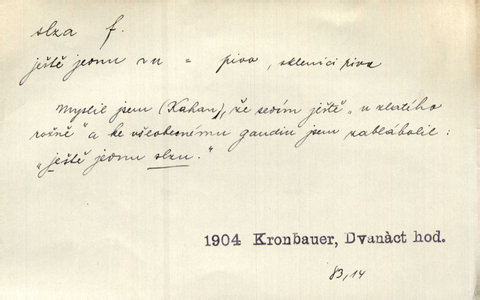 slza f.
ještě jednu slzu = pivo, sklenici piva
Myslil jsem (Kahan), že sedím ještě „u zlatého
rožně" a ke všeobecnému gaudiu jsem zablábolil:
„ještě jednu slzu."
1904 Kronbauer, Dvanàct hod.
83,14